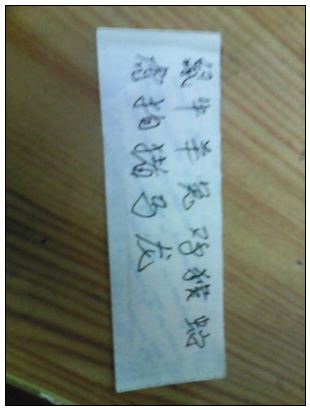 鼠牛羊兔鸡猴蛇
虎狗猪马龙